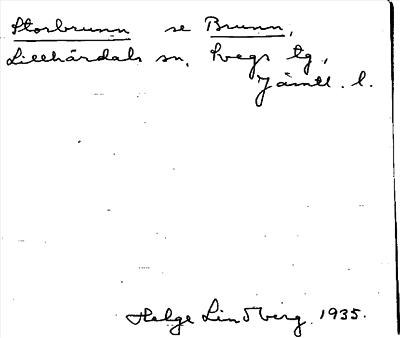 Storbrunn se Brunn,
Lillhärdals sn, Svegs tg,
Jämtl. l.
Helge Lindberg. 1935.